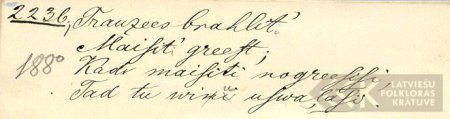 2236, Trauzees brahlit'
Maisit' greest;
188°
Kadi maisiti nogreesisi,
Tad tu winu uswalasi.
LATVIEŠU
FOLKLORAS
KRĀTUVE